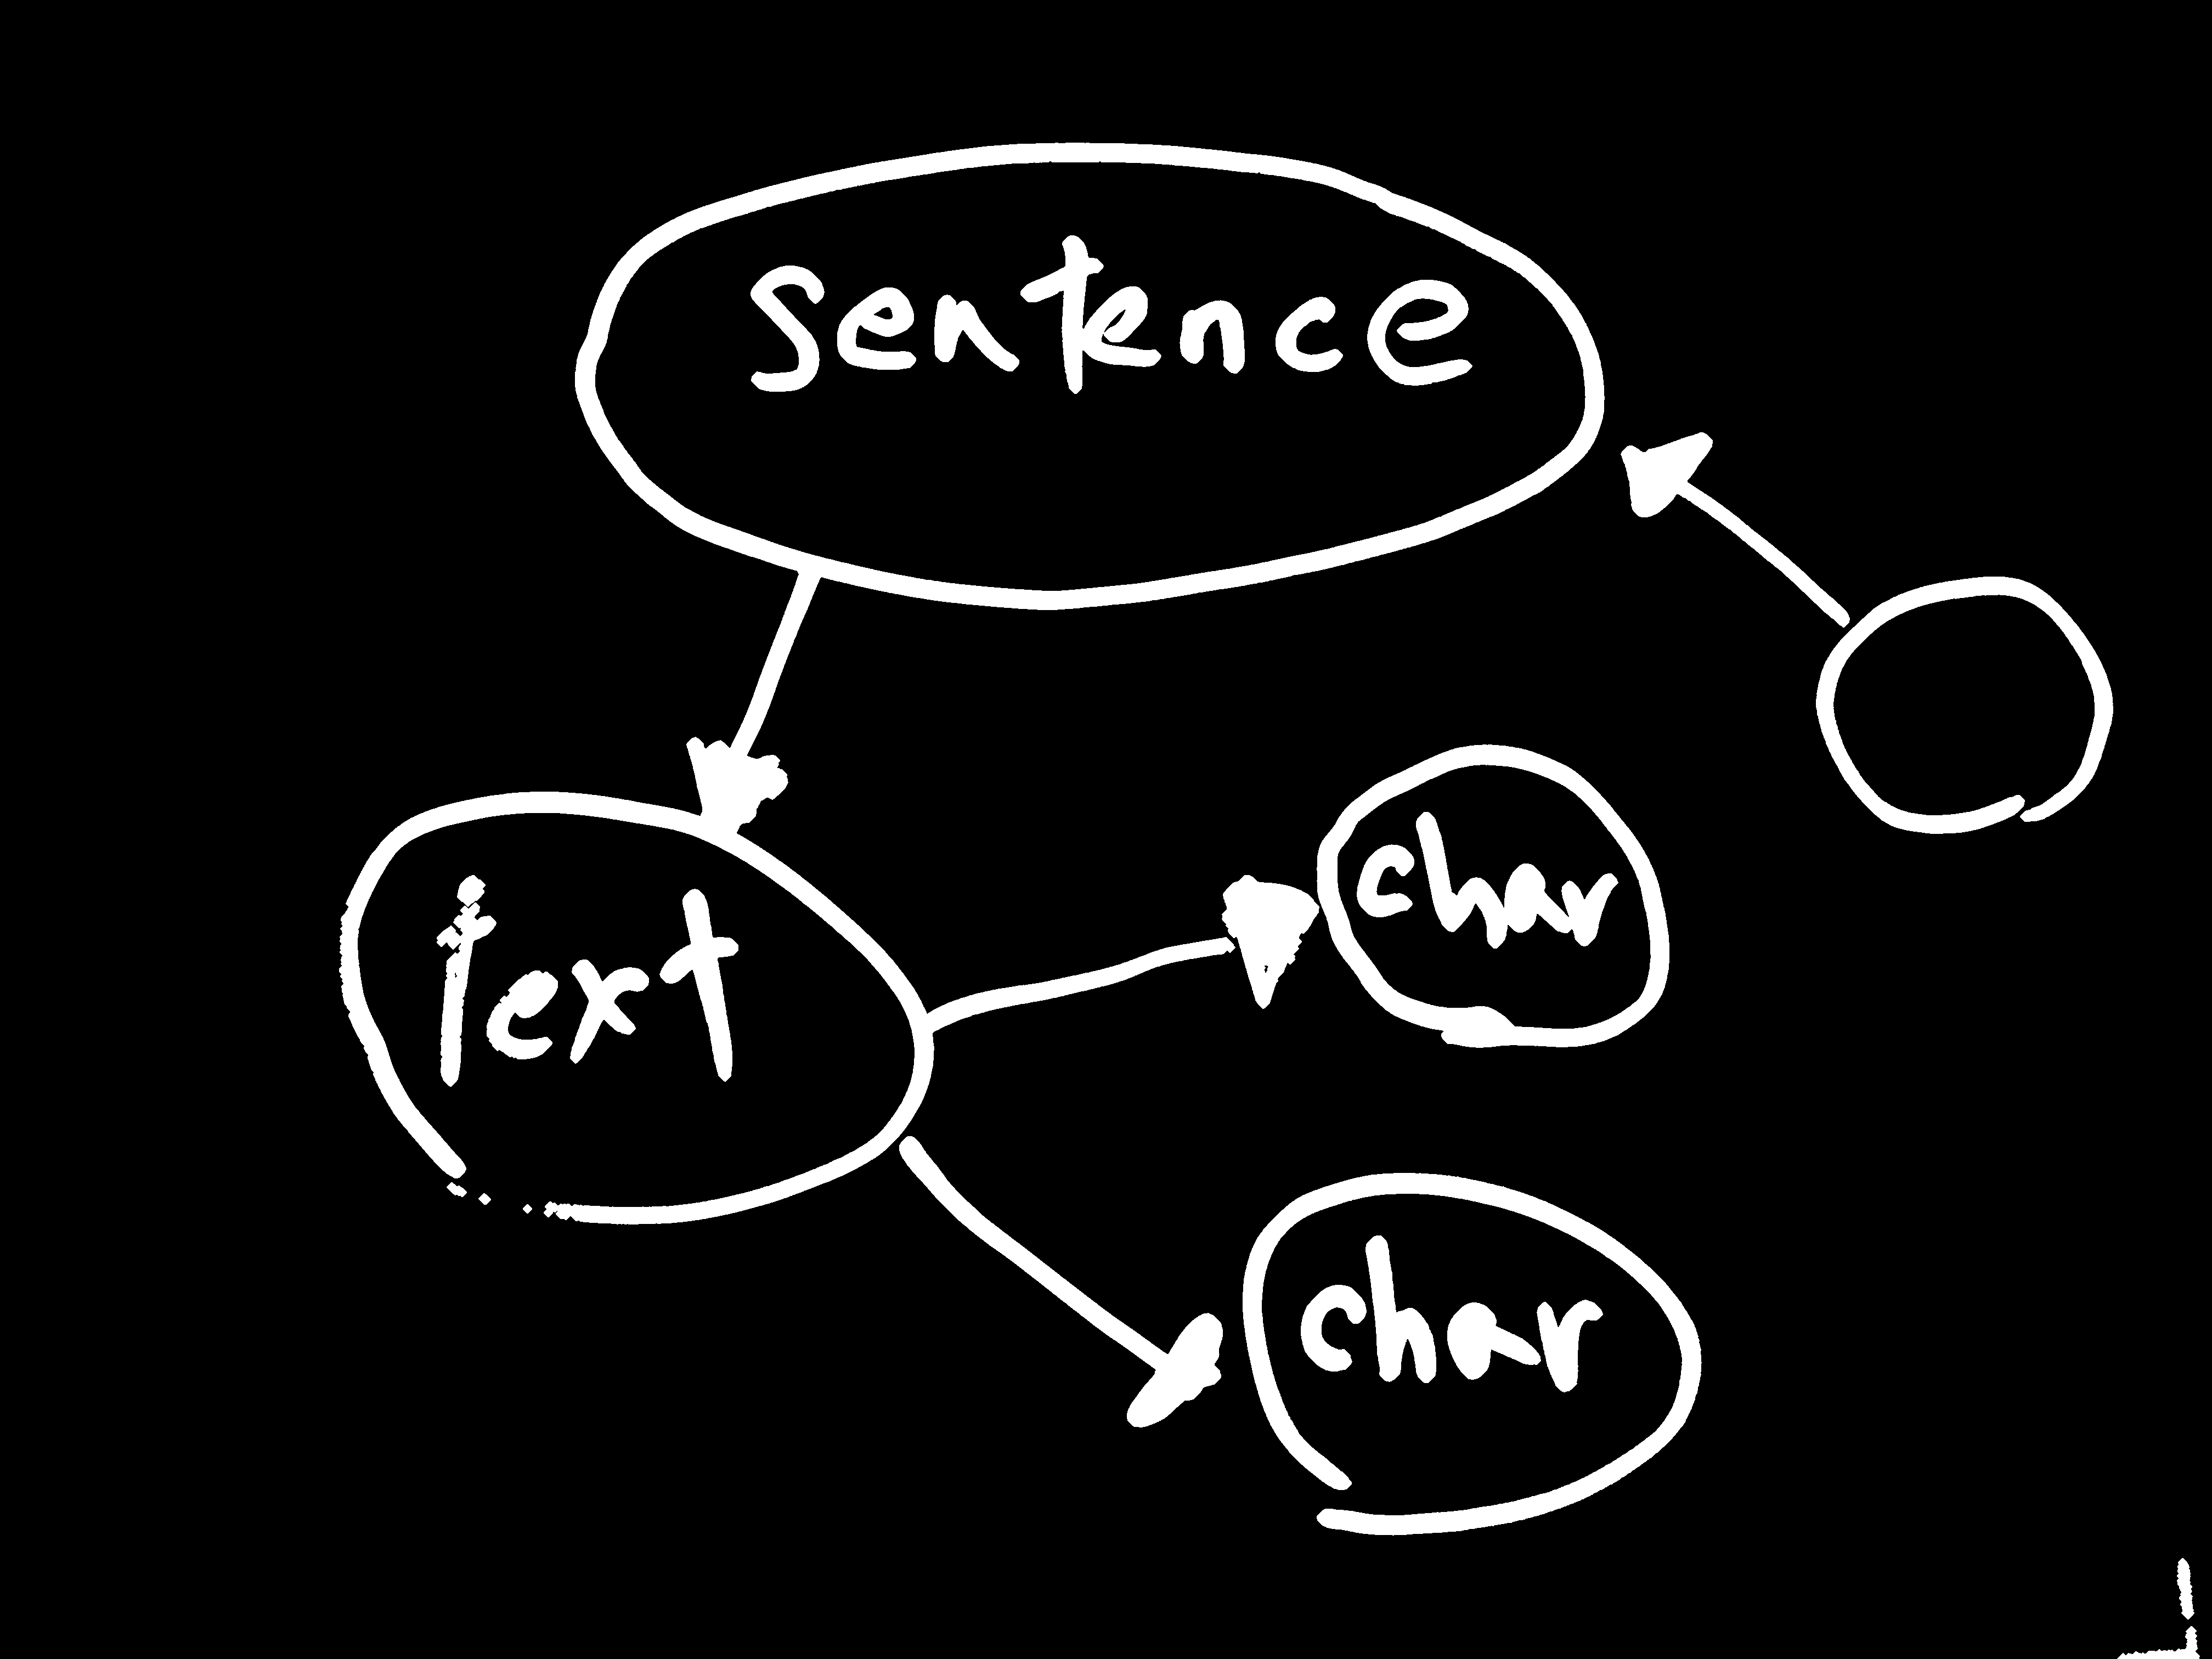 Sentence
Text
char
char